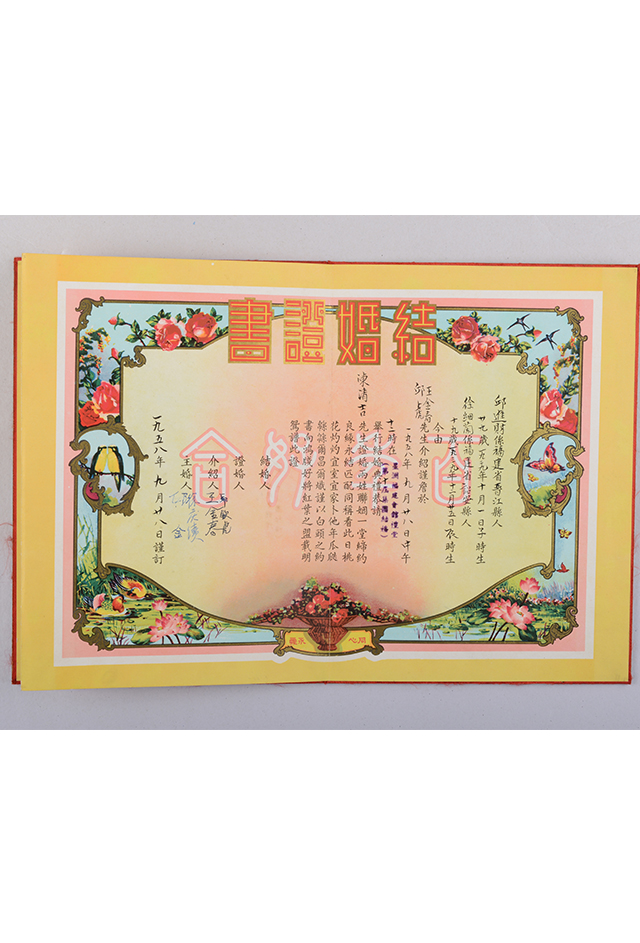 結婚證書
邱進財係福建省晉江縣人
廿九歲一九二九年十月一日子時生
徐細蘭係福建省詔安縣人
十九歲一九三九年十二月廿五日辰時生
今由
先生介紹謹詹於
一九五八年九月廿八日下午
十二時在星洲福建會館禮堂
舉行結婚典禮恭請
陳清吉先生證婚兩姓聯姻一堂締約
良緣永結匹配同稱看此日桃
花灼灼宜室宜家卜他年瓜瓞
緜緜爾昌爾熾謹以白頭之約
書向鴻箋好將紅葉之盟載明
鴛譜此證
結婚人
證婚人
介紹人
主婚人
一九五八年九月廿八日謹訂
同心永織